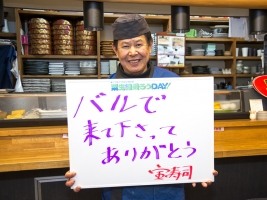 バルで
来て下さって
ありがとう
宝寿司